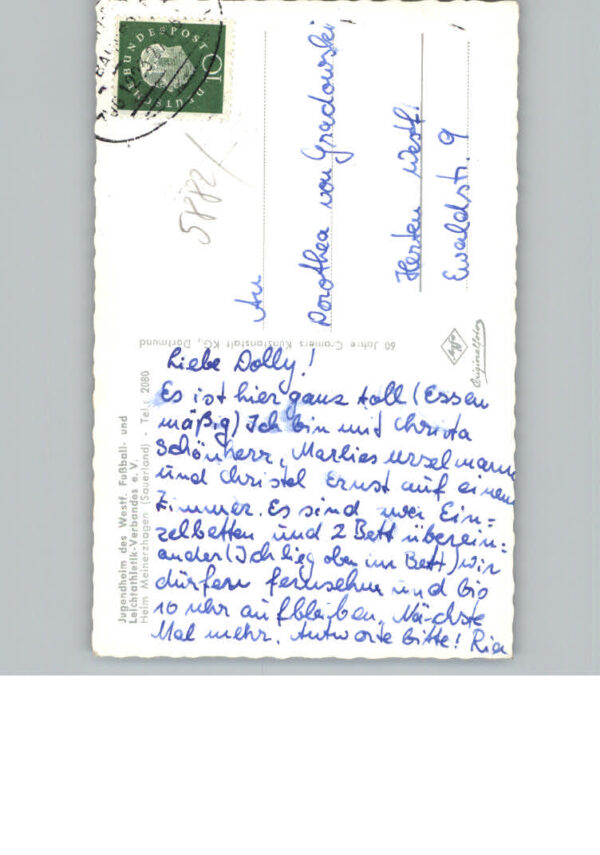 Liebe Dolly!
Es ist hier ganz toll (Essen
mäßig) Ich bin mit Christa
Schönherr, Marlies Urselmann
und Christel Ernst auf einem
Zimmer. Es sind zwei Ein=
zelbetten und 2 Bett überein=
ander (Ich lieg oben im Bett) wir
dürfen fernsehn und bis
10 Uhr aufbleiben. Nächste
Mal mehr. Antworte bitte! Ria
An
Dorothea von Gradowski
Herten Westf.
Ewaldstr. 9
5882/
DEUTSCHE BUNDESPOST
10
60 Jahre Cramers Kunstanstalt KG., Dortmund
Agfa
Originalfoto
Jugendheim des Westf. Fußball- und
Leichtathletik-Verbandes e. V.
Heim Meinerzhagen (Sauerland) - Tel.: 2080